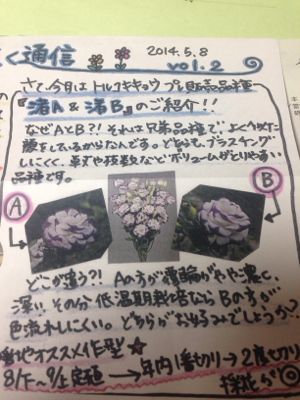 く通信
2014.5.8
vol.2
さて、今月は トルコキキョウ プレ販売品種
『渚A & 渚B』のご紹介!!
なぜAとB?! それは兄弟品種で、よく似た
顔をしているからなんです。どちらも、ブラスチング
しにくく、草丈や枝数など ボリュームがとりやすい
品種です。
A
B
どこが違う?! Aの方が覆輪がやや濃く、
深い。その分 低温期栽培なら Bの方が
色流れしにくい。どちらがお好みでしょうか?
暖地オススメ作型
8/下〜9/上定植 → 年内1番切り → 2度切り
採花